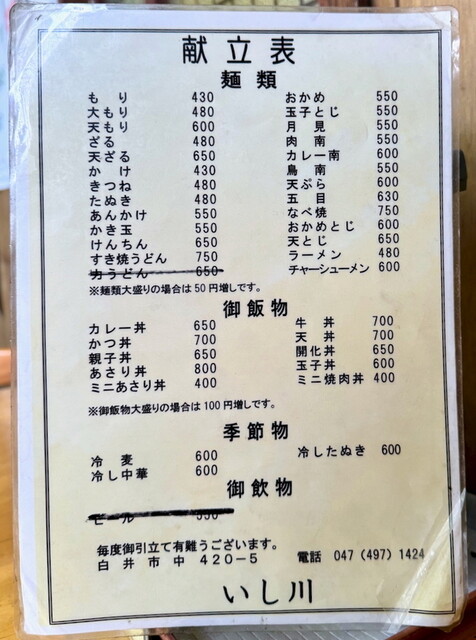 献立表
麺類
もり 430
大もり 480
天もり 600
ざる 480
天ざる 650
かけ 430
きつね 480
たぬき 480
あんかけ 550
かき玉 550
けんちん 650
すき焼うどん 750
力うどん 650
おかめ 550
玉子とじ 550
月見 550
肉南 550
カレー南 600
鳥南 550
天ぷら 600
五目 630
なべ焼 750
おかめとじ 600
天とじ 650
ラーメン 480
チャーシューメン 600
※麺類大盛りの場合は50円増しです。
御飯物
カレー丼 650
かつ丼 700
親子丼 650
あさり丼 800
ミニあさり丼 400
牛丼 700
天丼 700
開化丼 650
玉子丼 600
ミニ焼肉丼 400
※御飯物大盛りの場合は100円増しです。
季節物
冷麦 600
冷し中華 600
冷したぬき 600
御飲物
ビール 550
毎度御引立て有難うございます。
白井市中 420-5 電話 047 (497) 1424
いし川